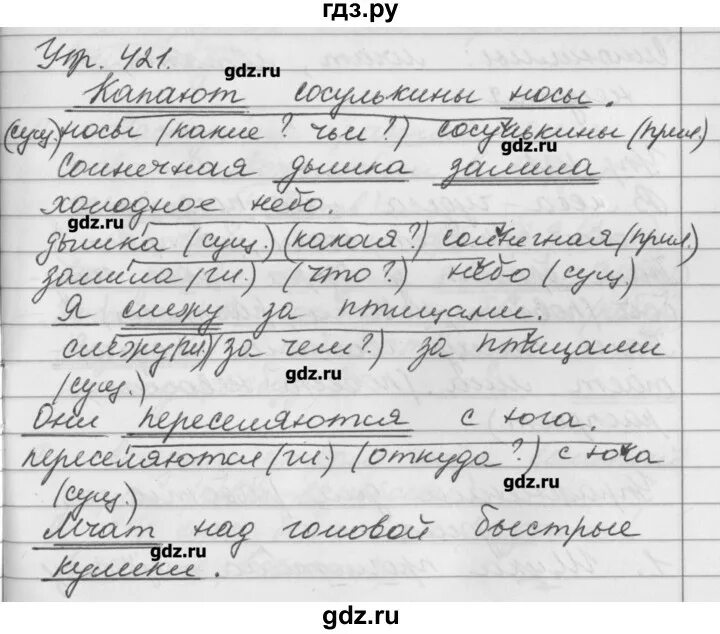 гдз.ру
Упр. 421.
gdz.ru
Капают сосулькины носы.
(сущ.) носы (какие? чьи?) сосулькины (прил.)
gdz.ru
Солнечная дымка залила
холодное небо.
gdz.ru
дымка (сущ.) (какая?) солнечная (прил.)
залила (гл.) (что?) небо (сущ.)
Я слежу за птицами.
слежу (гл.) (за чем?) за птицами
gdz.ru
(сущ.)
Они переселяются с юга.
переселяются (гл.) (откуда?) с юга
gdz.ru
(сущ.)
Мчат над головой быстрые
gdz.ru
кулики.
gdz.ru